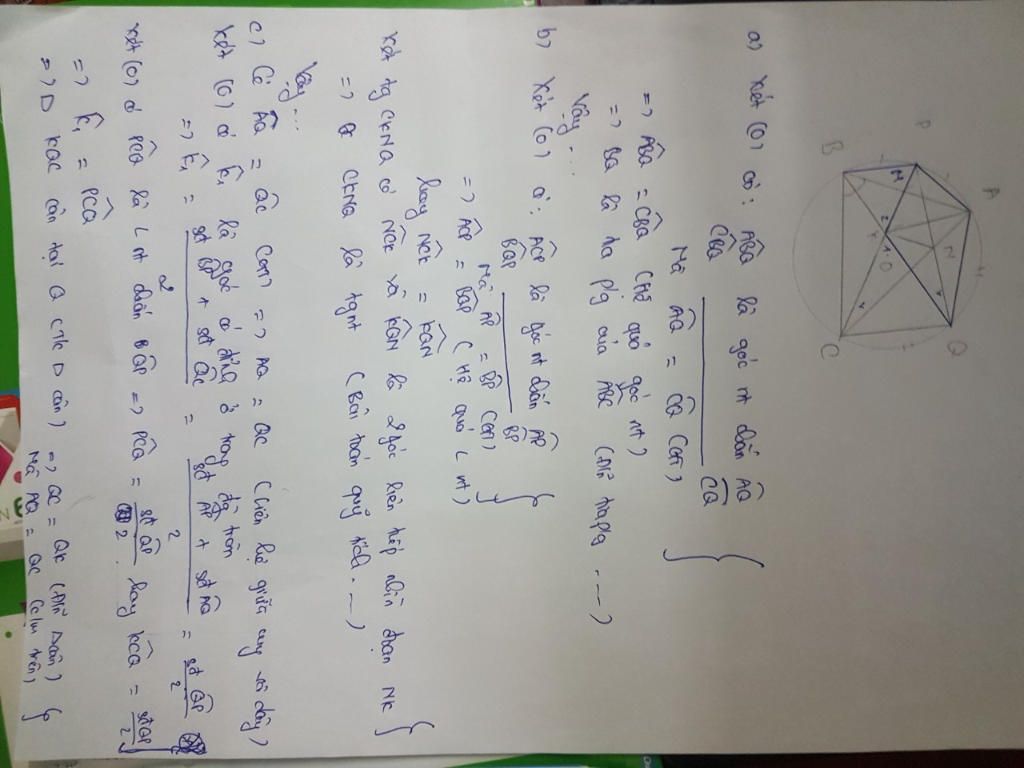 P
A
B
M
N
K
O
Q
C
a) Xét (O) có: ABQ̂ là góc nt chắn AQ̂
CBQ̂ CQ̂
Mà AQ̂ = CQ̂ (cm)
=> ABQ̂ = CBQ̂ (hệ quả góc nt)
=> BQ là tia p/g của ABĈ
Vậy ...
b) Xét (O) có: ACP̂ là góc nt chắn AP̂
BQP̂ BP̂
Mà AP̂ = BP̂ (cm)
=> ACP̂ = BQP̂ (hệ quả ∠ nt)
hay NCK̂ = KQN̂
Xét tg CKNQ có NCK̂ và KQN̂ là 2 góc liên tiếp nhìn đoạn NK
=> tg CKNQ là tgnt (Bài toán quỹ tích ...)
Vậy ...
c) Có AQ̂ = QĈ (cm) => AQ = QC (liên hệ giữa cung và dây)
Xét (O) có K̂₁ là góc có đỉnh ở trong đg tròn
=> K̂₁ = sđ BP̂ + sđ QĈ / 2 = sđ AP̂ + sđ AQ̂ / 2 = sđ QP̂ / 2
Xét (O) có PCQ̂ là ∠ nt chắn QP̂ => PCQ̂ = sđ QP̂ / 2 hay KCQ̂ = sđ QP̂ / 2
=> K̂₁ = PCQ̂
=> Δ KQC cân tại Q (t/c Δ cân) => QC = QK
Mà AQ = QC (cm trên)